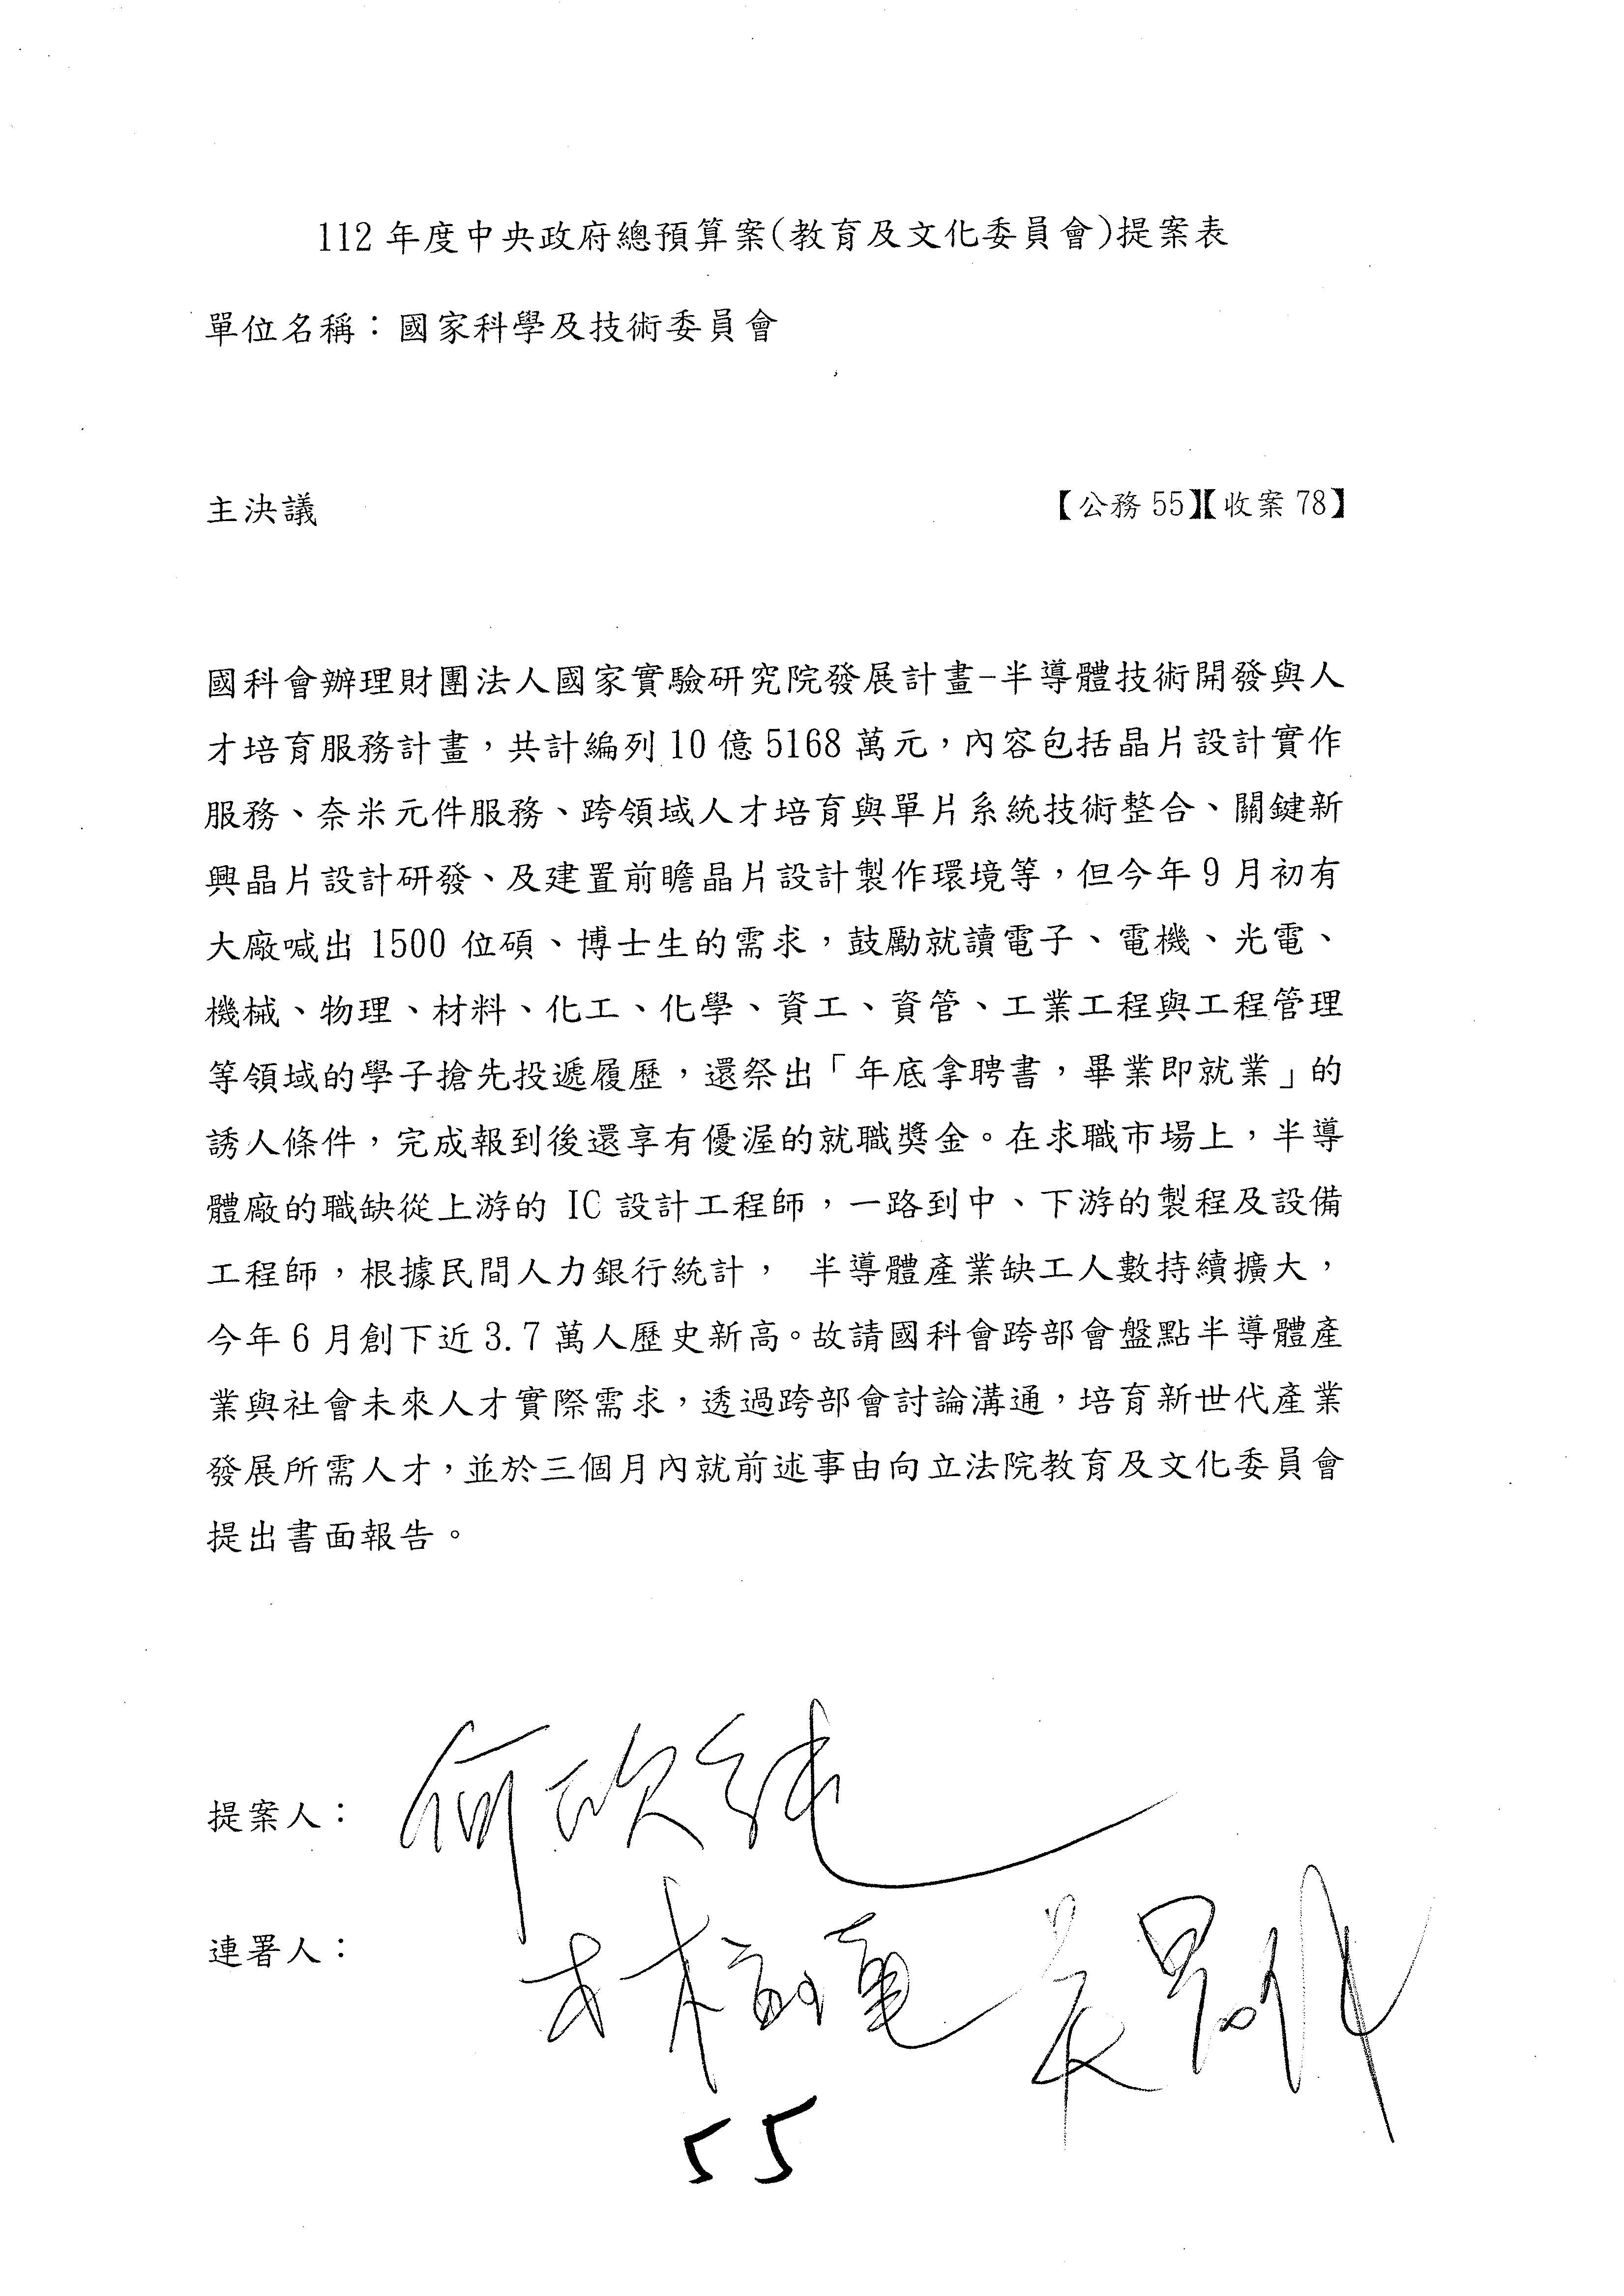 112 年度中央政府總預算案(教育及文化委員會)提案表
單位名稱：國家科學及技術委員會
主決議
【公務 55】【收案 78】
國科會辦理財團法人國家實驗研究院發展計畫-半導體技術開發與人
才培育服務計畫，共計編列 10 億 5168 萬元，內容包括晶片設計實作
服務、奈米元件服務、跨領域人才培育與單片系統技術整合、關鍵新
興晶片設計研發、及建置前瞻晶片設計製作環境等，但今年 9 月初有
大廠喊出 1500 位碩、博士生的需求，鼓勵就讀電子、電機、光電、
機械、物理、材料、化工、化學、資工、資管、工業工程與工程管理
等領域的學子搶先投遞履歷，還祭出「年底拿聘書，畢業即就業」的
誘人條件，完成報到後還享有優渥的就職獎金。在求職市場上，半導
體廠的職缺從上游的 IC 設計工程師，一路到中、下游的製程及設備
工程師，根據民間人力銀行統計， 半導體產業缺工人數持續擴大，
今年 6 月創下近 3.7 萬人歷史新高。故請國科會跨部會盤點半導體產
業與社會未來人才實際需求，透過跨部會討論溝通，培育新世代產業
發展所需人才，並於三個月內就前述事由向立法院教育及文化委員會
提出書面報告。
提案人：何欣純
連署人：
55